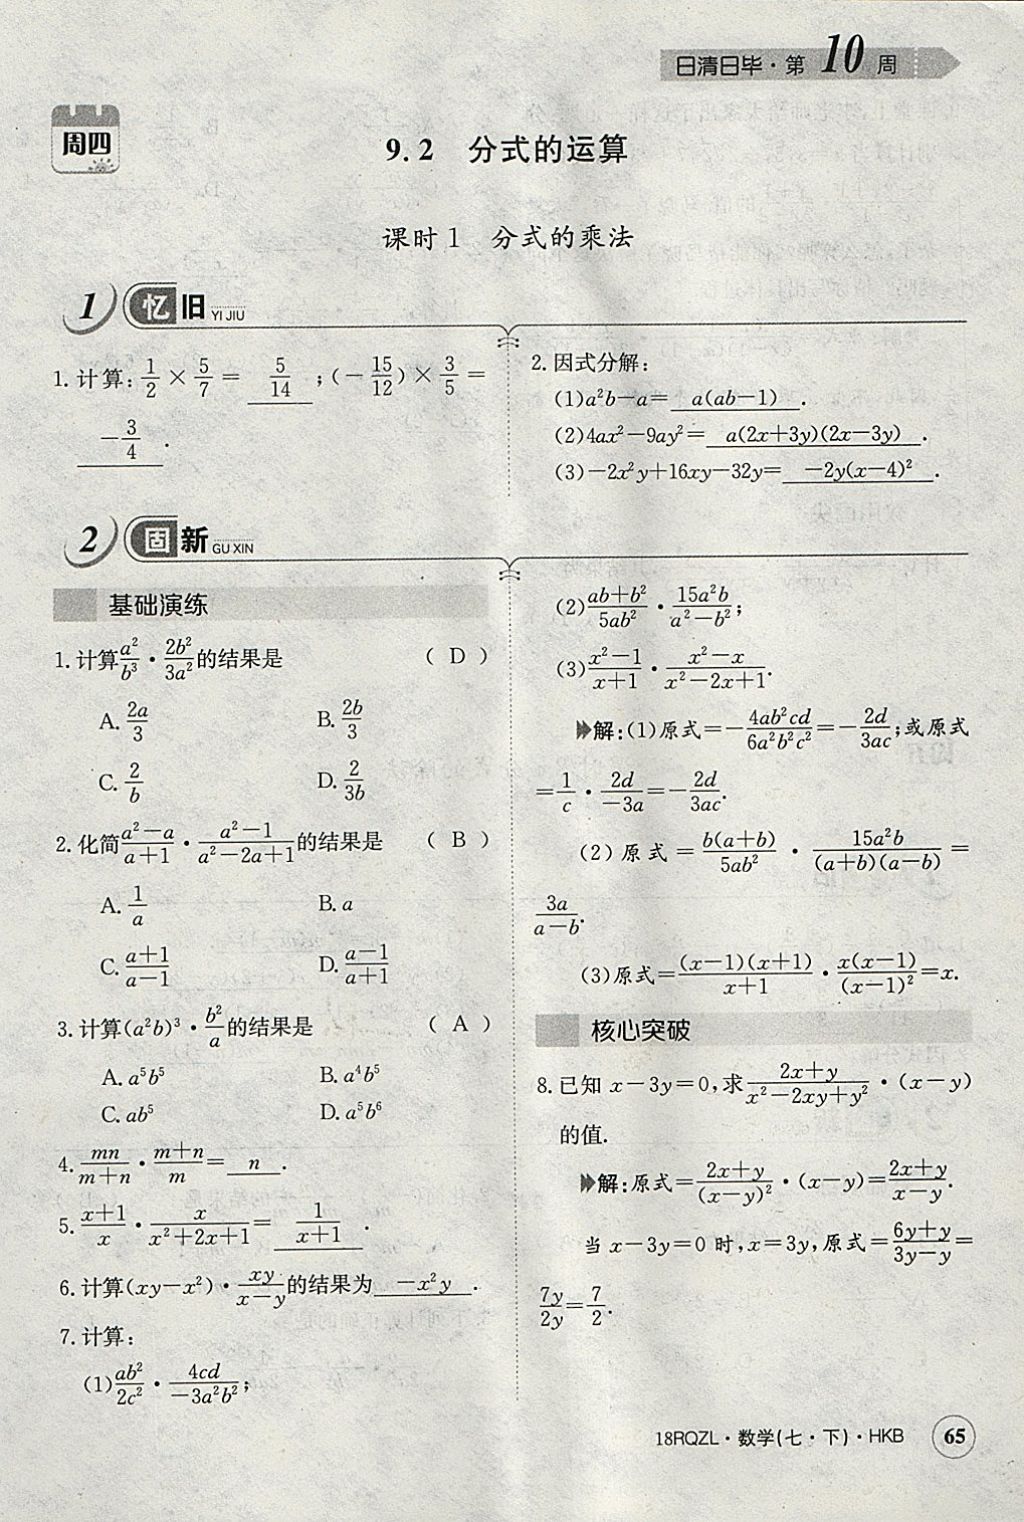 日清日毕·第10周
周四
9.2 分式的运算
课时1 分式的乘法
1 忆旧 YI JIU
1. 计算: 1/2 × 5/7 = 5/14 ;(-15/12) × 3/5 =
-3/4 .
2. 因式分解:
(1)a²b-a= a(ab-1) .
(2)4ax²-9ay²= a(2x+3y)(2x-3y) .
(3)-2x²y+16xy-32y= -2y(x-4)² .
2 固新 GU XIN
基础演练
1. 计算 a²/b³ · 2b²/3a² 的结果是 ( D )
A. 2a/3 B. 2b/3
C. 2/b D. 2/3b
2. 化简 (a²-a)/(a+1) · (a²-1)/(a²-2a+1) 的结果是 ( B )
A. 1/a B. a
C. (a+1)/(a-1) D. (a-1)/(a+1)
3. 计算(a²b)³ · b²/a 的结果是 ( A )
A. a⁵b⁵ B. a⁴b⁵
C. ab⁵ D. a⁵b⁶
4. mn/(m+n) · (m+n)/m = n .
5. (x+1)/x · x/(x²+2x+1) = 1/(x+1) .
6. 计算(xy-x²) · xy/(x-y) 的结果为 -x²y .
7. 计算:
(1) ab²/2c² · 4cd/-3a²b² ;
(2) (ab+b²)/5ab² · 15a²b/(a²-b²) ;
(3) (x²-1)/(x+1) · (x²-x)/(x²-2x+1) .
解:(1)原式=-4ab²cd/6a²b²c²=-2d/3ac;或原式
=1/c · 2d/-3a=-2d/3ac.
(2)原式=b(a+b)/5ab² · 15a²b/(a+b)(a-b)=
3a/(a-b).
(3)原式=(x-1)(x+1)/(x+1) · x(x-1)/(x-1)²=x.
核心突破
8. 已知 x-3y=0,求 (2x+y)/(x²-2xy+y²) · (x-y)
的值.
解:原式=(2x+y)/(x-y)² · (x-y)=(2x+y)/(x-y).
当 x-3y=0 时,x=3y,原式=(6y+y)/(3y-y)=
7y/2y=7/2.
18RQZL·数学(七·下)·HKB 65